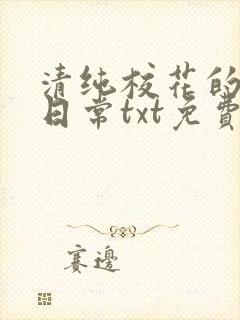 清纯校花的
日常txt免費
赛邊